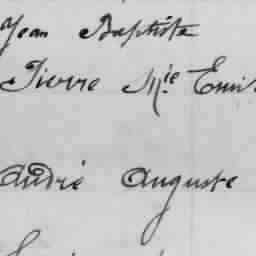 Jean Baptiste
Pierre Mie Emi
André Auguste